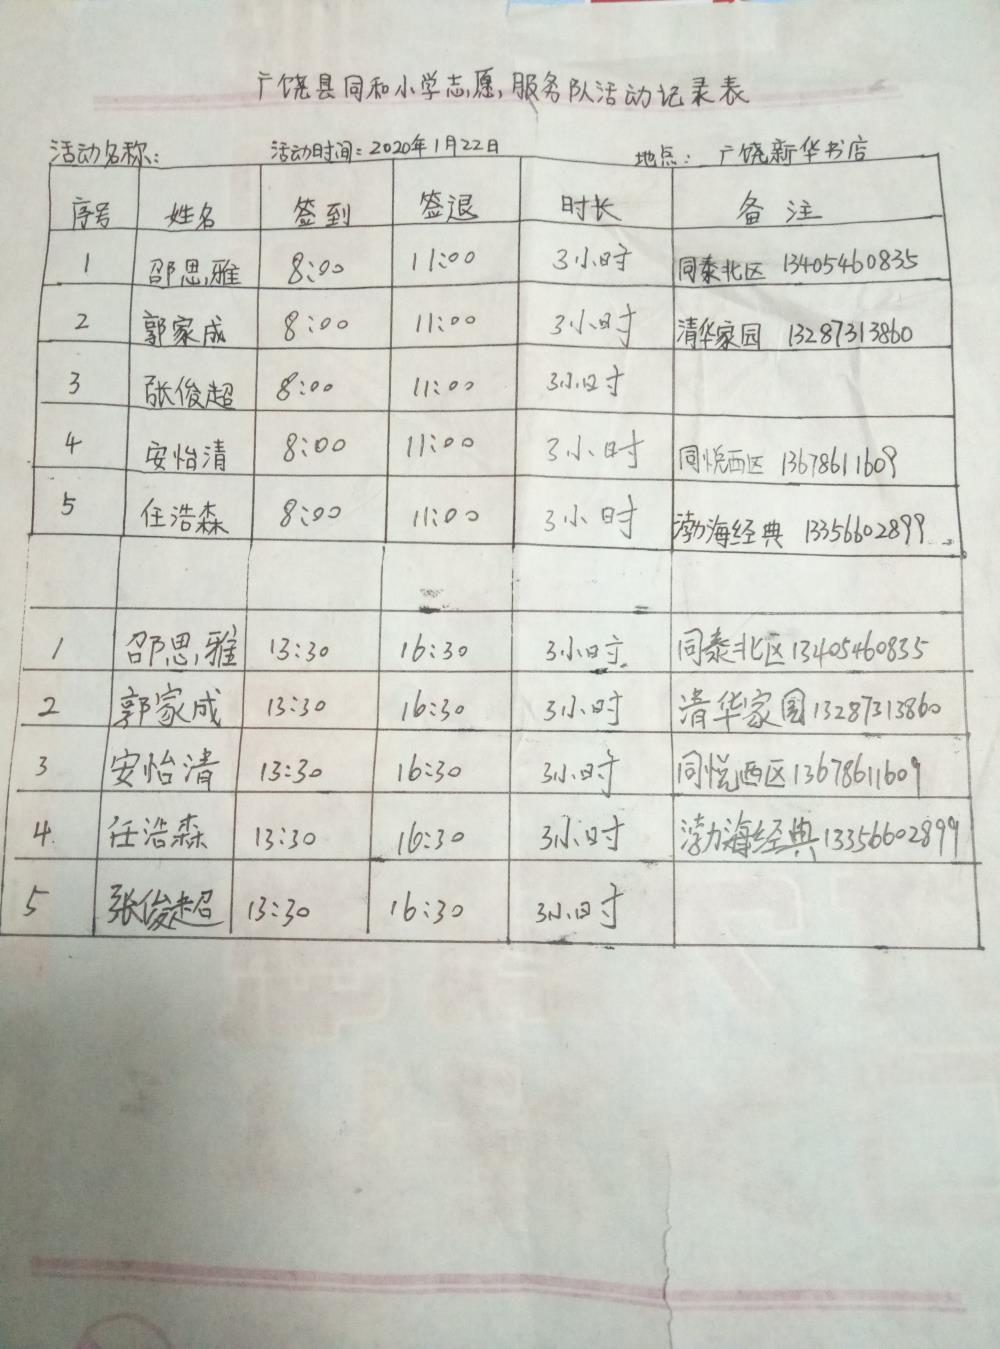 广饶县同和小学志愿服务队活动记录表
活动名称: 活动时间:2020年1月22日 地点: 广饶新华书店
序号 姓名 签到 签退 时长 备注
1 邵思雅 8:00 11:00 3小时 同泰北区 13405460835
2 郭家成 8:00 11:00 3小时 清华家园 13287313860
3 张俊超 8:00 11:00 3小时
4 安怡清 8:00 11:00 3小时 同悦西区 13678611609
5 任浩森 8:00 11:00 3小时 渤海经典 13356602899
1 邵思雅 13:30 16:30 3小时 同泰北区13405460835
2 郭家成 13:30 16:30 3小时 清华家园13287313860
3 安怡清 13:30 16:30 3小时 同悦西区13678611609
4 任浩森 13:30 16:30 3小时 渤海经典13356602899
5 张俊超 13:30 16:30 3小时